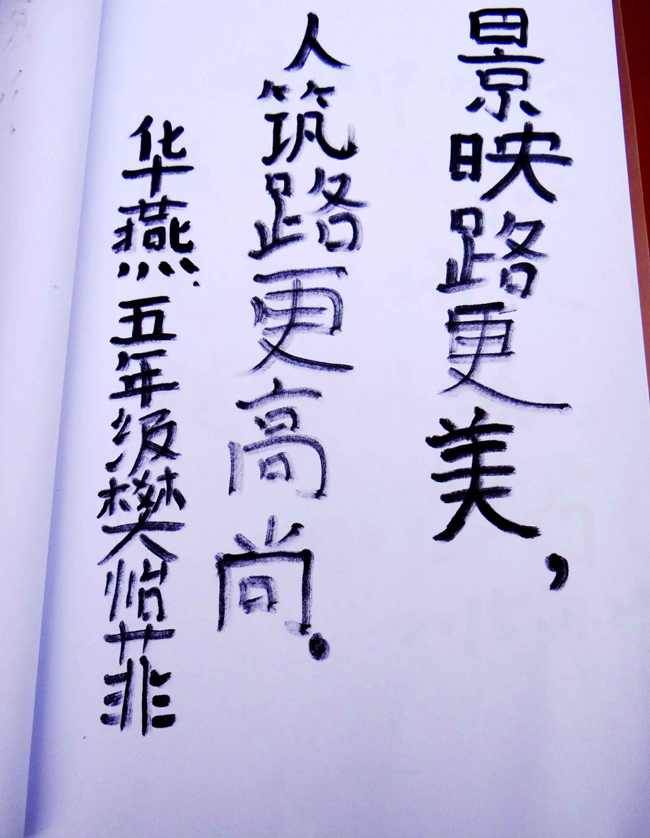 景映路更美，
人筑路更高尚.
华燕五年级樊怡菲